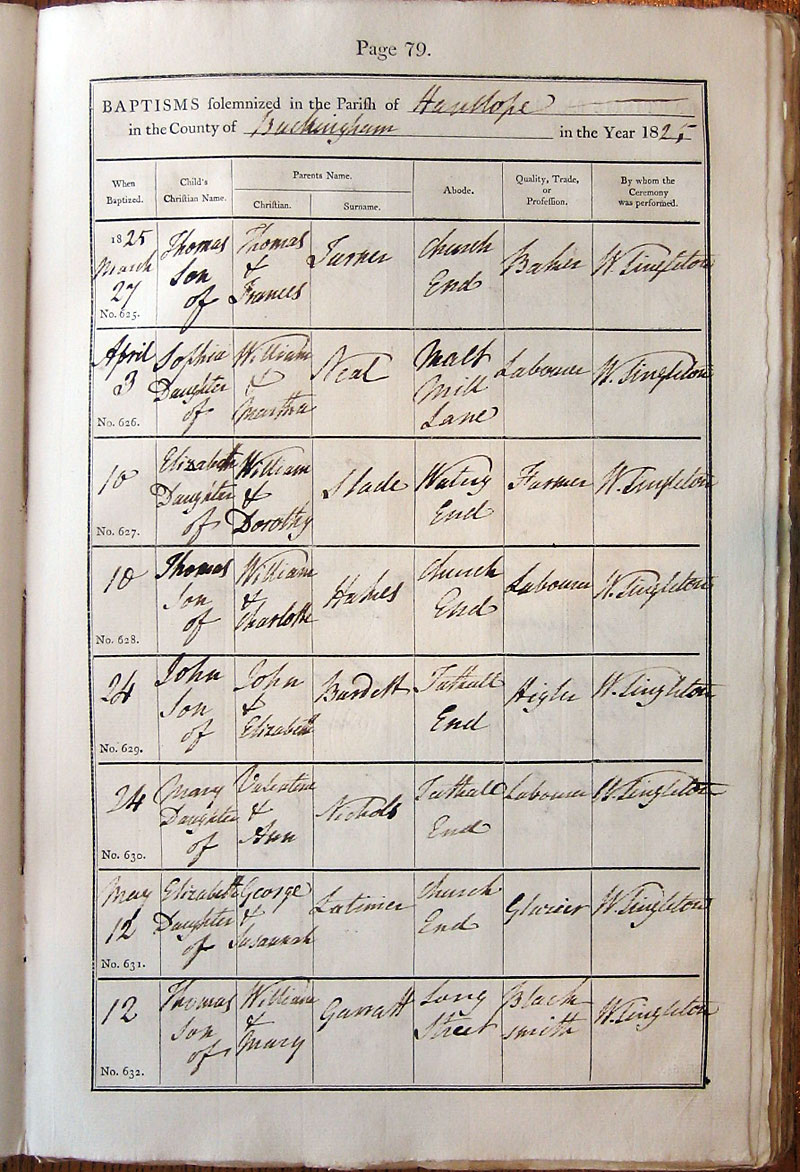 Page 79.
BAPTISMS solemnized in the Parish of Hanslope
in the County of Buckingham in the Year 1825
When Baptized.
Child's Christian Name.
Parents Name.
Christian.
Surname.
Abode.
Quality, Trade, or Profession.
By whom the Ceremony was performed.
1825
March
27
No. 625.
Thomas
Son
of
Thomas
&
Frances
Turner
Church
End
Baker
W. Singleton
April
3
No. 626.
Sophia
Daughter
of
William
&
Martha
Neal
Malt
Mill
Lane
Labourer
W. Singleton
10
No. 627.
Elizabeth
Daughter
of
William
&
Dorothy
Slade
Watery
End
Farmer
W. Singleton
10
No. 628.
Thomas
Son
of
William
&
Charlotte
Church
End
Labourer
W. Singleton
24
No. 629.
John
Son
of
John
&
Elizabeth
Burdett
Tathall
End
Higler
W. Singleton
24
No. 630.
Mary
Daughter
of
Valentine
&
Ann
Nichols
Tathall
End
Labourer
W. Singleton
May
12
No. 631.
Elizabeth
Daughter
of
George
&
Susannah
Latimer
Church
End
Glazier
W. Singleton
12
No. 632.
Thomas
Son
of
William
&
Mary
Garratt
Long
Street
Black
smith
W. Singleton